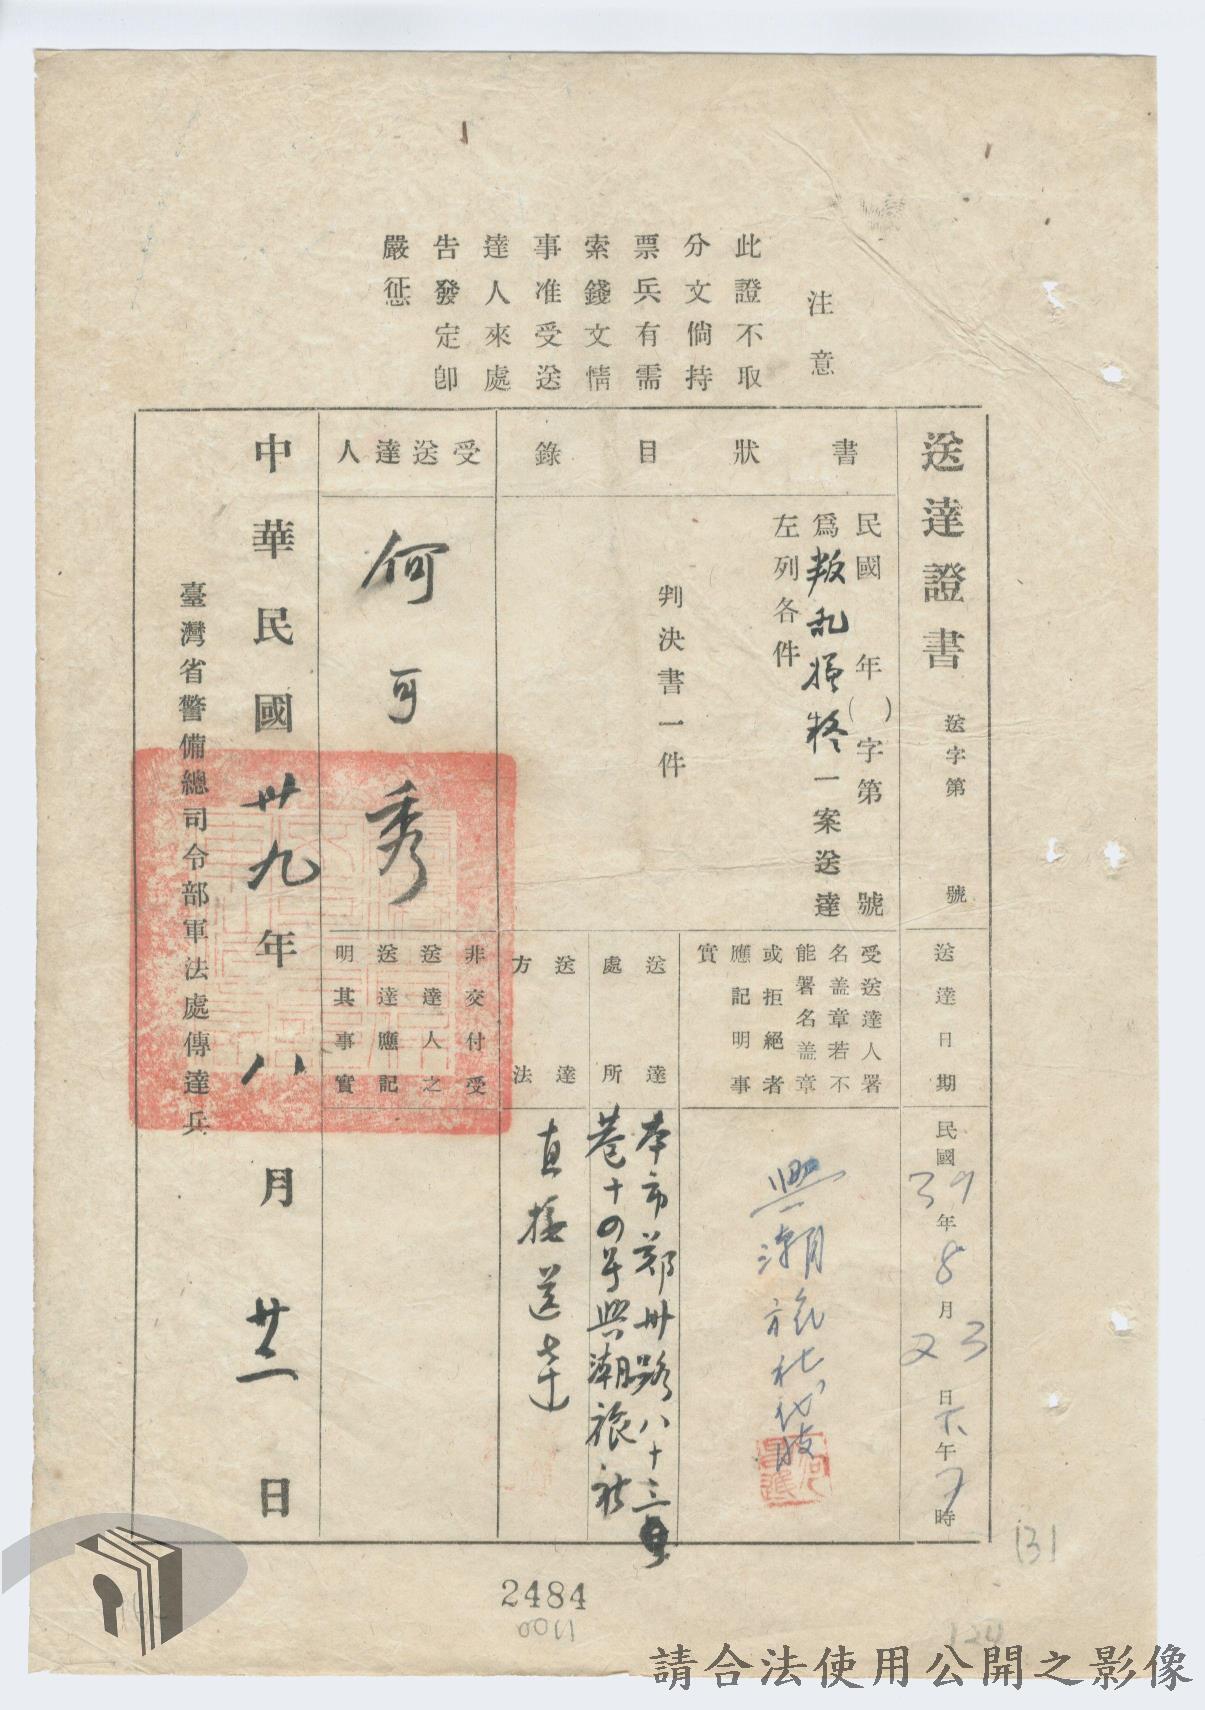 注意
此證不取
分文倘持
票兵有需
索錢文情
事准受送
達人來處
告發定卽
嚴懲
送達證書
送字第 號
送達日期
民國39年8月23日下午7時
書狀目錄
民國 年( )字第 號
爲叛乱擾害一案送達
左列各件
判决書一件
受送達人署
名蓋章若不
能署名蓋章
或拒絕者
應記明事
實
興潮旅社代收
送達
處所
本市鄭州路八十三
巷十四号興潮旅社
送達
方法
直接送達
受送達人
何可秀
非交付受
送達人之
送達應記
明其事實
中華民國卅九年八月廿二日
臺灣省警備總司令部軍法處傳達兵
131
2484
0011
124
請合法使用公開之影像